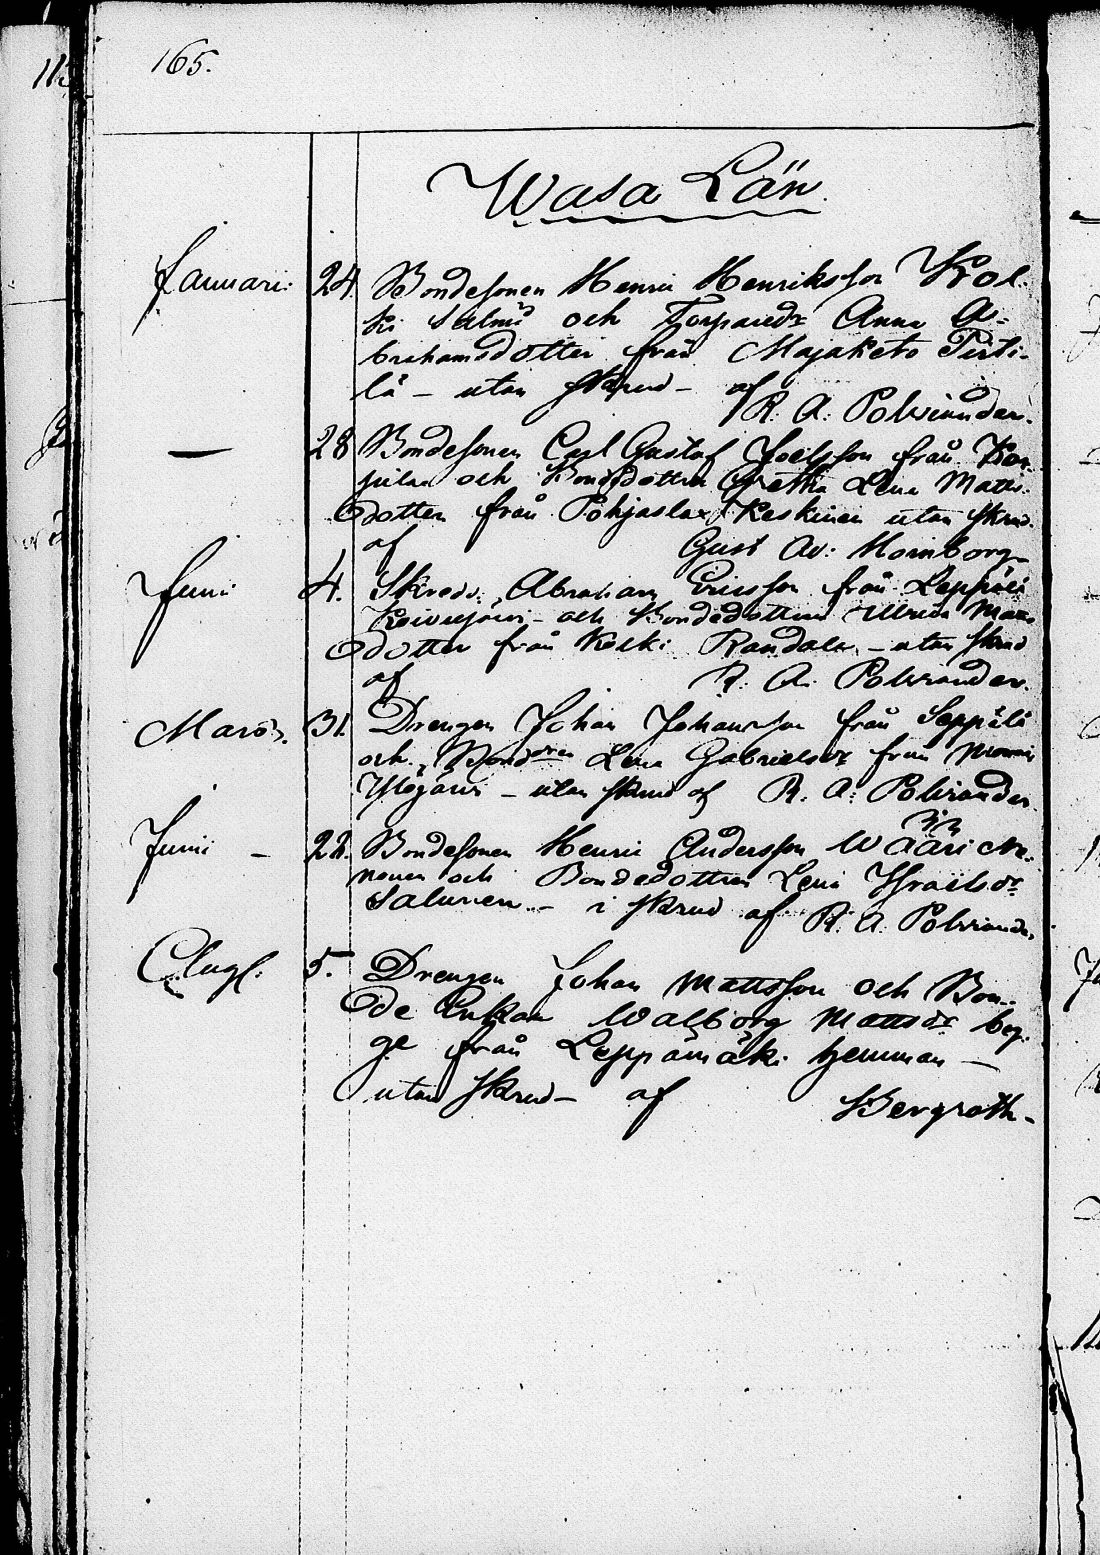 165.
Wasa Län
Januari. 24. Bondesonen Henric Henriksson Kol-
ki Salmis och Torparedr Anna A-
brahamsdotter från Majaketo Pirti-
lä – utan skrud – af
R. A. Polviander.
— 28 Bondesonen Carl Gustaf Joelsson från
och Bondedottren Gretha Lena Matts-
dotter från Pohjaslax Keskinen utan skrud.
af Gust Ad: Hornborg
Juni 4. Skredd. Abraham Ericsson från Leppälä
Koivujärvi – och Bondedottren Ulrica Matts
dotter från Kolki Randala – utan skrud
af R. A. Polviander.
Mars. 31. Drengen Johan Johansson från Seppälä
och Lena Gabrielsdr från
Ylöjärvi – utan skrud af R. A. Polviander
Juni – 22. Bondesonen Henric Andersson Wääri
nonen och Bondedottren Lena Israelsdr
Salunen – i skrud af R. A. Polviander
Aug. 5. Drengen Johan Mattsson och Bon-
de Enkan Walborg Mattsdr beg-
ge från Leppämäki hemman –
utan skrud – af Bergroth –